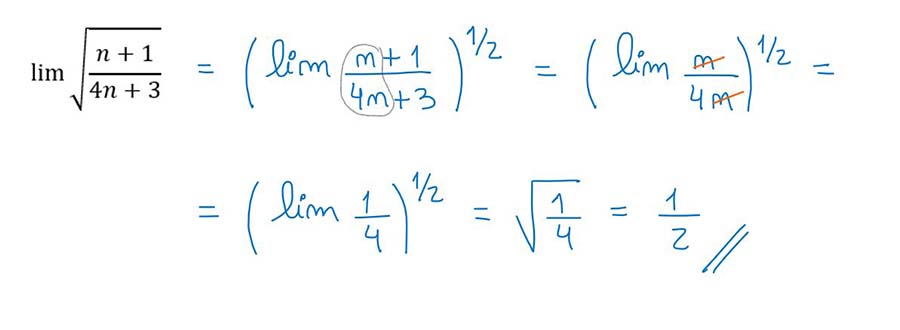 lim √((n + 1)/(4n + 3)) = (lim (n+1)/(4n+3))^1/2 = (lim n/4n)^1/2 =
= (lim 1/4)^1/2 = √(1/4) = 1/2 //